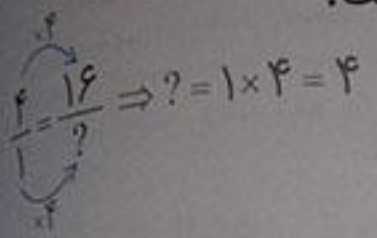 ×۴
۴/۱ = ۱۶/? ⇒ ? = ۱ × ۴ = ۴
×۴